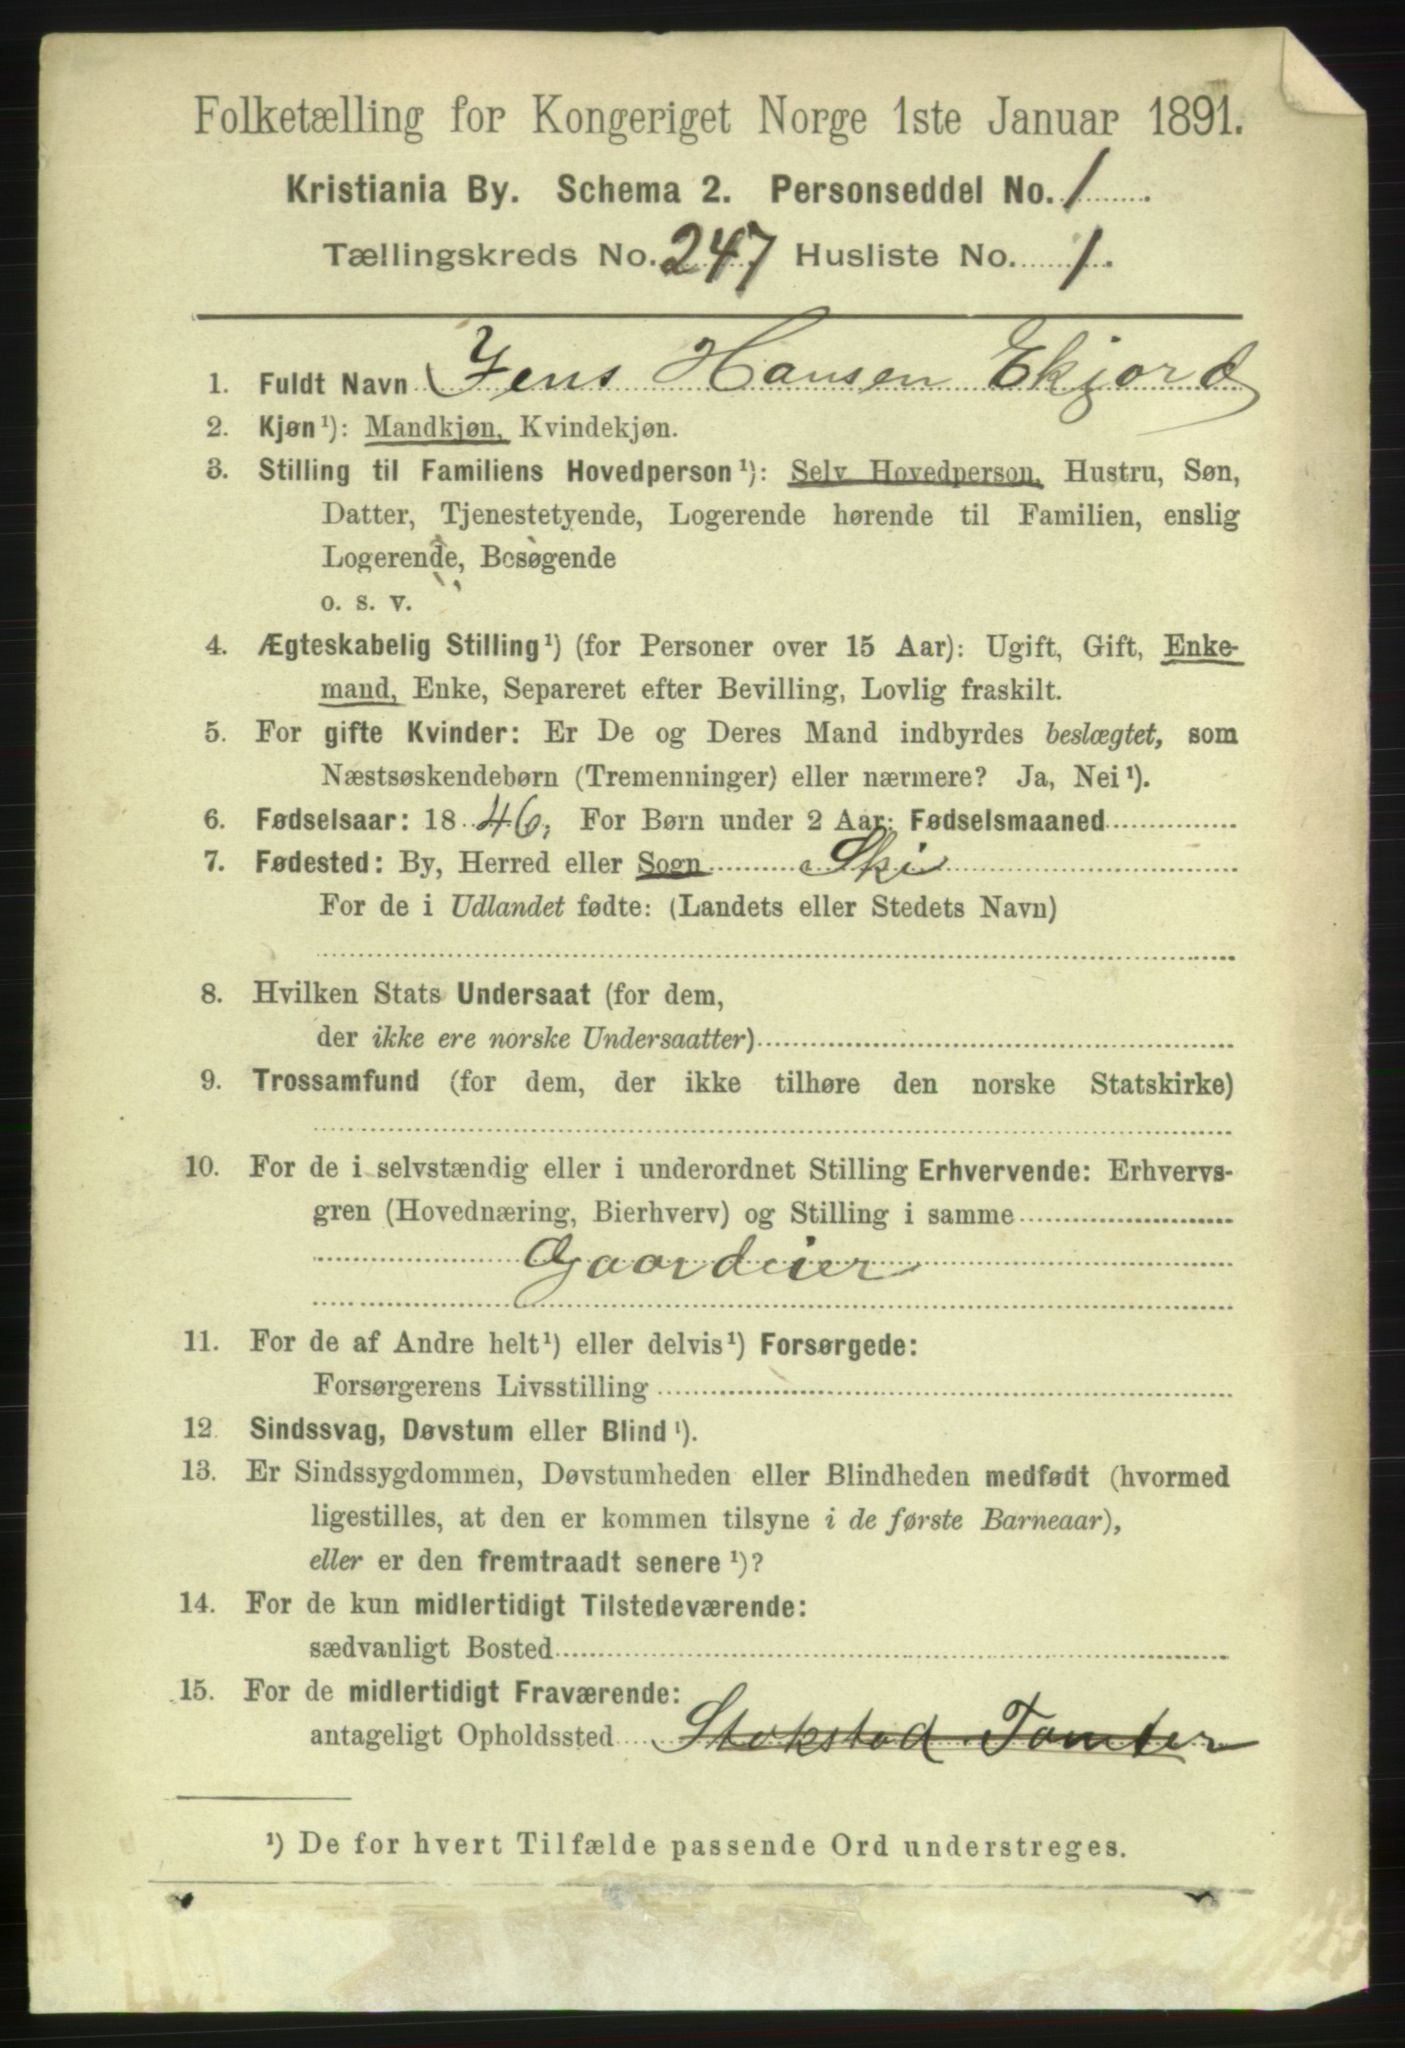 Folketælling for Kongeriget Norge 1ste Januar 1891.
Kristiania By. Schema 2. Personseddel No. 1
Tællingskreds No. 247 Husliste No. 1.
1. Fuldt Navn Jens Hansen Ekjord
2. Kjøn¹): Mandkjøn, Kvindekjøn.
3. Stilling til Familiens Hovedperson¹): Selv Hovedperson, Hustru, Søn,
Datter, Tjenestetyende, Logerende hørende til Familien, enslig
Logerende, Besøgende
o. s. v.
4. Ægteskabelig Stilling¹) (for Personer over 15 Aar): Ugift, Gift, Enke-
mand, Enke, Separeret efter Bevilling, Lovlig fraskilt.
5. For gifte Kvinder: Er De og Deres Mand indbyrdes beslægtet, som
Næstsøskendebørn (Tremenninger) eller nærmere? Ja, Nei¹).
6. Fødselsaar: 1846, For Børn under 2 Aar: Fødselsmaaned
7. Fødested: By, Herred eller Sogn Ski
For de i Udlandet fødte: (Landets eller Stedets Navn)
8. Hvilken Stats Undersaat (for dem,
der ikke ere norske Undersaatter)
9. Trossamfund (for dem, der ikke tilhøre den norske Statskirke)
10. For de i selvstændig eller i underordnet Stilling Erhvervende: Erhvervs-
gren (Hovednæring, Bierhverv) og Stilling i samme
Gaardeier
11. For de af Andre helt¹) eller delvis¹) Forsørgede:
Forsørgerens Livsstilling
12. Sindssvag, Døvstum eller Blind¹).
13. Er Sindssygdommen, Døvstumheden eller Blindheden medfødt (hvormed
ligestilles, at den er kommen tilsyne i de første Barneaar),
eller er den fremtraadt senere¹)?
14. For de kun midlertidigt Tilstedeværende:
sædvanligt Bosted
15. For de midlertidigt Fraværende:
antageligt Opholdssted Stokstad Tomter
¹) De for hvert Tilfælde passende Ord understreges.